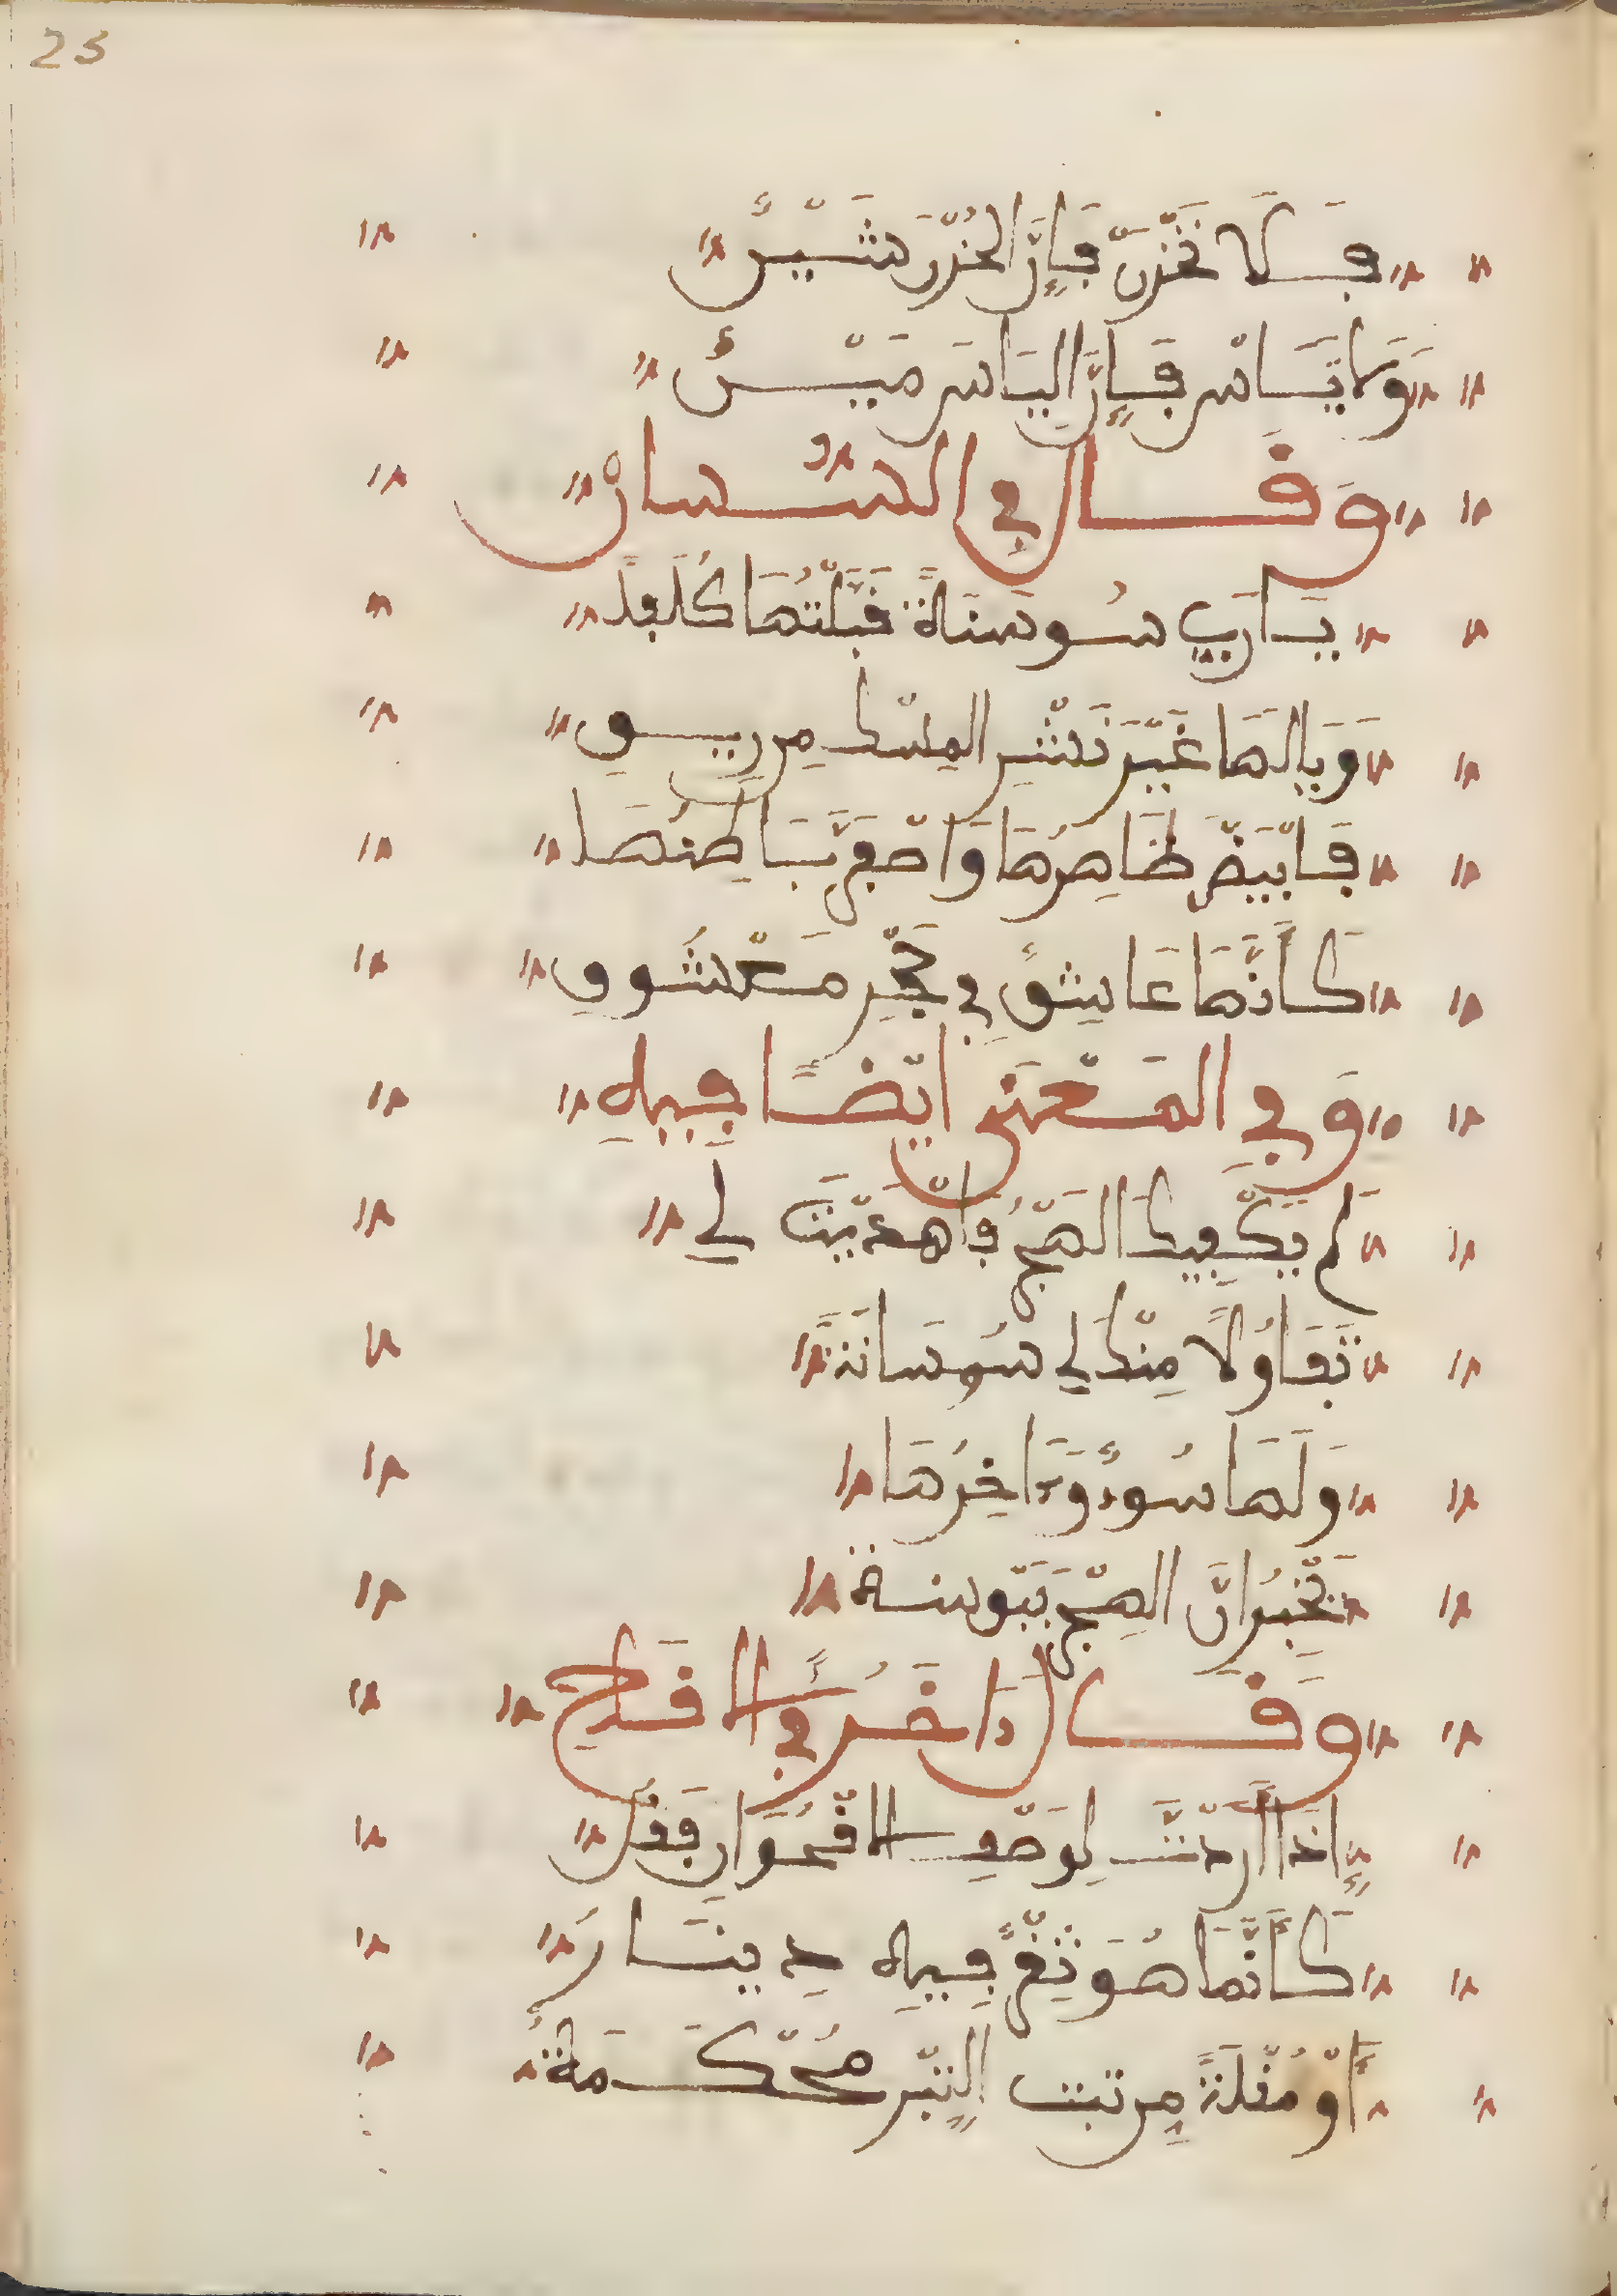 23
فَلَا تَحْزَنْ فَإِنَّ الْحُزْنَ شَيْنٌ
وَلَا تَيْأَسْ فَإِنَّ الْيَأْسَ مَيْنٌ
وَقَالَ فِي السُّوسَانْ
يَا رُبَّ سُوسَنَةٍ قَبَّلْتُهَا كَلَفًا
وَمَا لَهَا غَيْرَ نَشْرِ الْمِسْكِ مِن رِيقِ
فَابْيَضَّ ظَاهِرُهَا وَاصْفَرَّ بَاطِنُهَا
كَأَنَّمَا عَاشِقٌ فِي حِجْرِ مَعْشُوقِ
وَفِي الْمَعْنَى أَيْضًا فِيهِ
لَمْ يَكْفِيكَ الْهَجْرُ فَأَهْدَيْتَ لِي
تَفَاؤُلًا مِنْكَ لِي سُوسَانَةً
وَلَهَا سُوءٌ وَءَاخِرُهَا
يُخْبِرُ انَّ الْهِجْرَ يَبْقَى سنة
وَقَالَ ءَاخَرُ فِي الْأَقَاحِ
إِذَا أَرَدْتَّ لِوَصْفِ الْأُقْحُوَانِ فَقُلْ
كَأَنَّمَا هُوَ ثَغْرٌ فِيهِ دِينَارُ
أَوْ مُقْلَةٌ مِن نبت التِّبْرِ مُحْكَمَةٌ